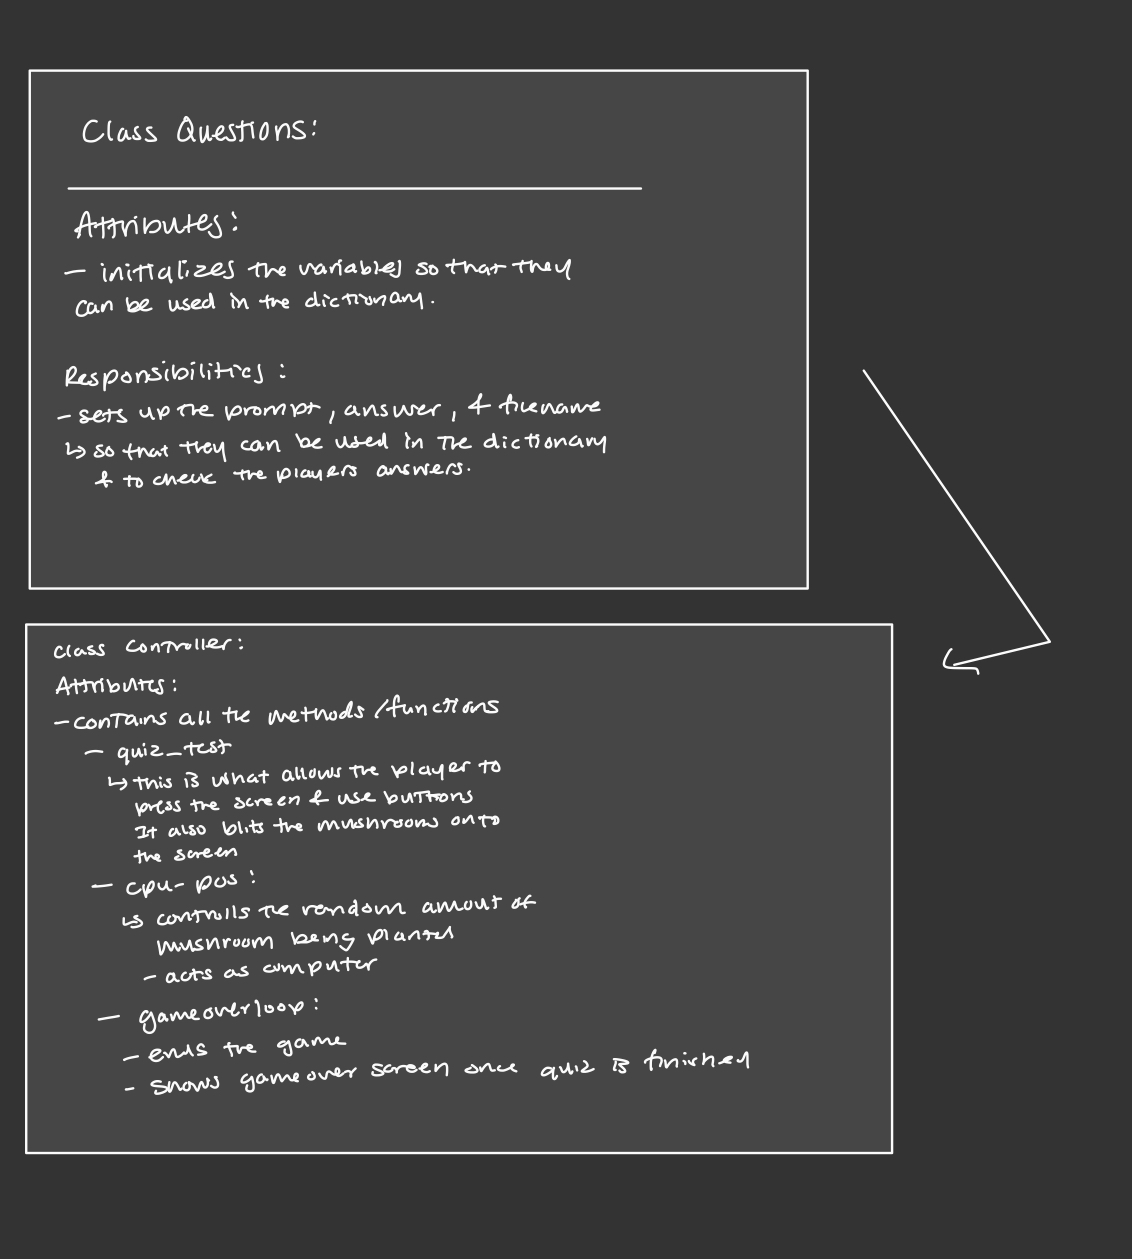 Class Questions:
Attributes:
- initializes the variables so that they
can be used in the dictionary.
Responsibilities:
- sets up the prompt, answer, & filename
↳ so that they can be used in the dictionary
& to check the players answers.
class Controller:
Attributes:
- contains all the methods/functions
- quiz_test
↳ this is what allows the player to
press the screen & use buttons
It also blits the mushrooms onto
the screen
- cpu-pos:
↳ controlls the random amout of
mushroom being planted
- acts as computer
- gameoverloop:
- ends the game
- shows gameover screen once quiz is finished